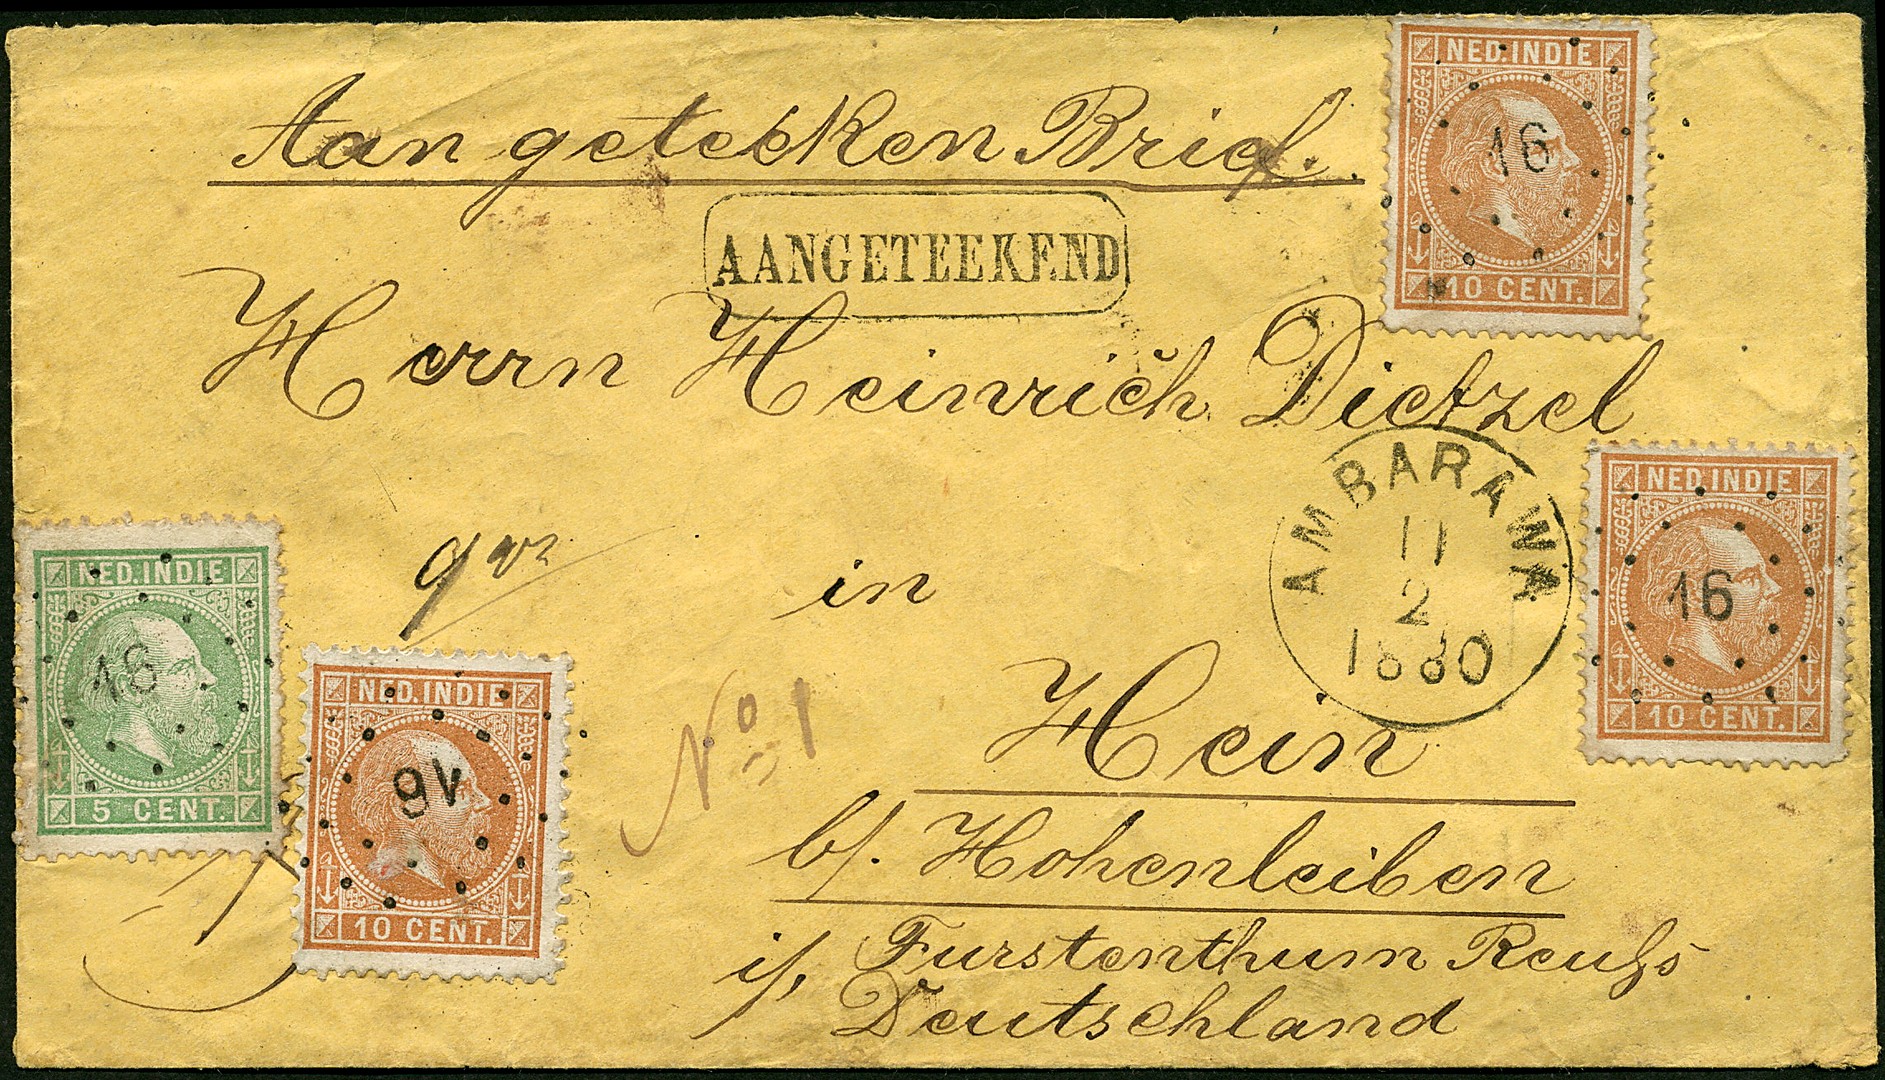 Aangeteeken Brief.
AANGETEEKEND
NED. INDIE
16
10 CENT.
Herrn Heinrich Dietzel
AMBARAWA
11
2
1880
NED. INDIE
16
10 CENT.
NED. INDIE
16
5 CENT.
NED. INDIE
16
10 CENT.
in
No 1
Hein
b/. Hohenleiben
i/. Furstenthum Reuſs
Deutschland